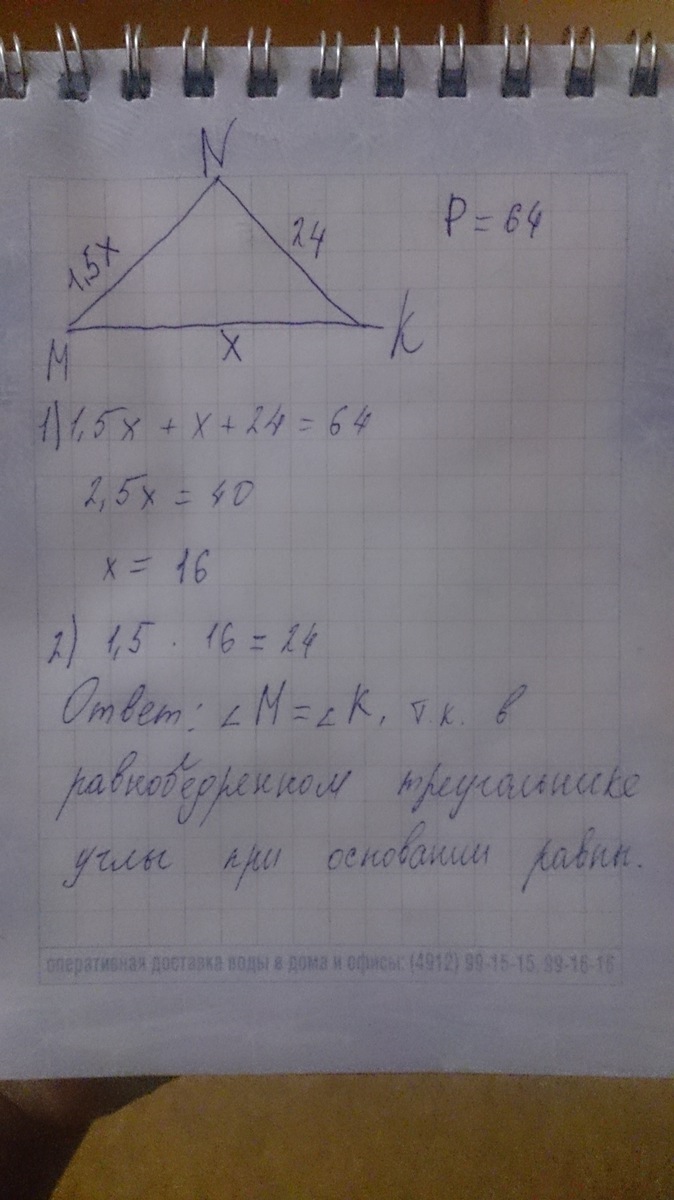 N
P = 64
1,5x
24
M
x
K
1) 1,5x + x + 24 = 64
2,5x = 40
x = 16
2) 1,5 · 16 = 24
Ответ: ∠M = ∠K, т.к. в
равнобедренном треугольнике
углы при основании равны.
оперативная доставка воды в дома и офисы: (4912) 99-15-15, 99-16-16